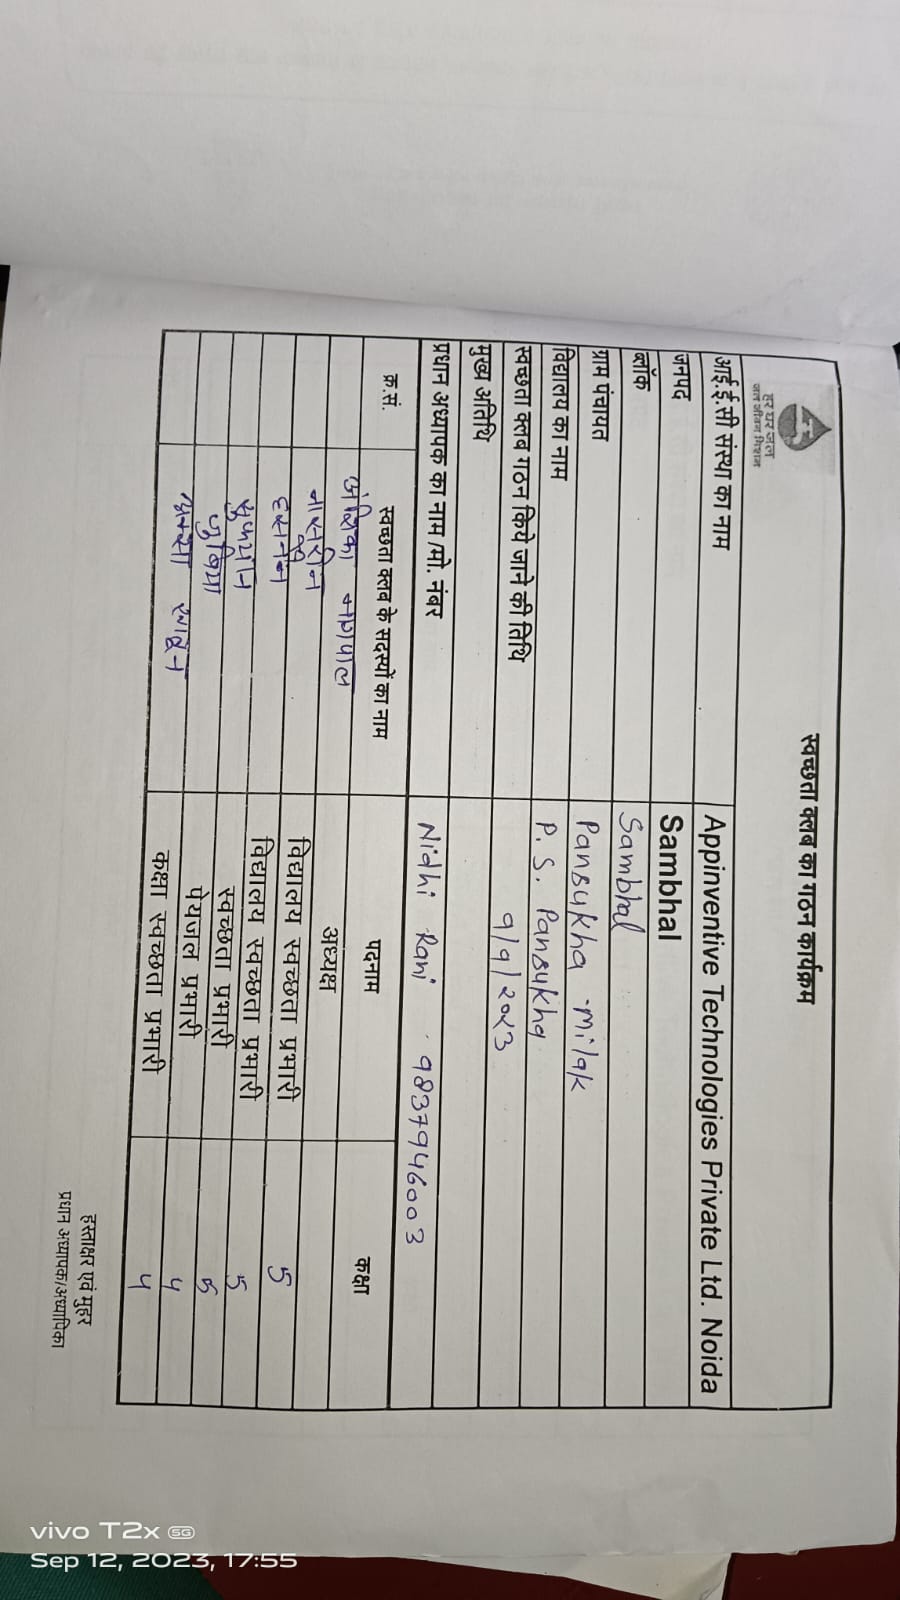 हर घर जल
जल जीवन मिशन
स्वच्छता क्लब का गठन कार्यक्रम
आई.ई.सी संस्था का नाम Appinventive Technologies Private Ltd. Noida
जनपद Sambhal
ब्लॉक Sambhal
ग्राम पंचायत Pansukha Milak
विद्यालय का नाम P. S. Pansukha
स्वच्छता क्लब गठन किये जाने की तिथि 9/9/2023
मुख्य अतिथि
प्रधान अध्यापक का नाम /मो. नंबर Nidhi Rani 9837946003
क्र.सं. स्वच्छता क्लब के सदस्यों का नाम पदनाम कक्षा
अंशिका नागपाल अध्यक्ष
विद्यालय स्वच्छता प्रभारी 5
विद्यालय स्वच्छता प्रभारी 5
स्वच्छता प्रभारी
पेयजल प्रभारी 4
कक्षा स्वच्छता प्रभारी 4
हस्ताक्षर एवं मुहर
प्रधान अध्यापक/अध्यापिका
vivo T2x 5G
Sep 12, 2023, 17:55